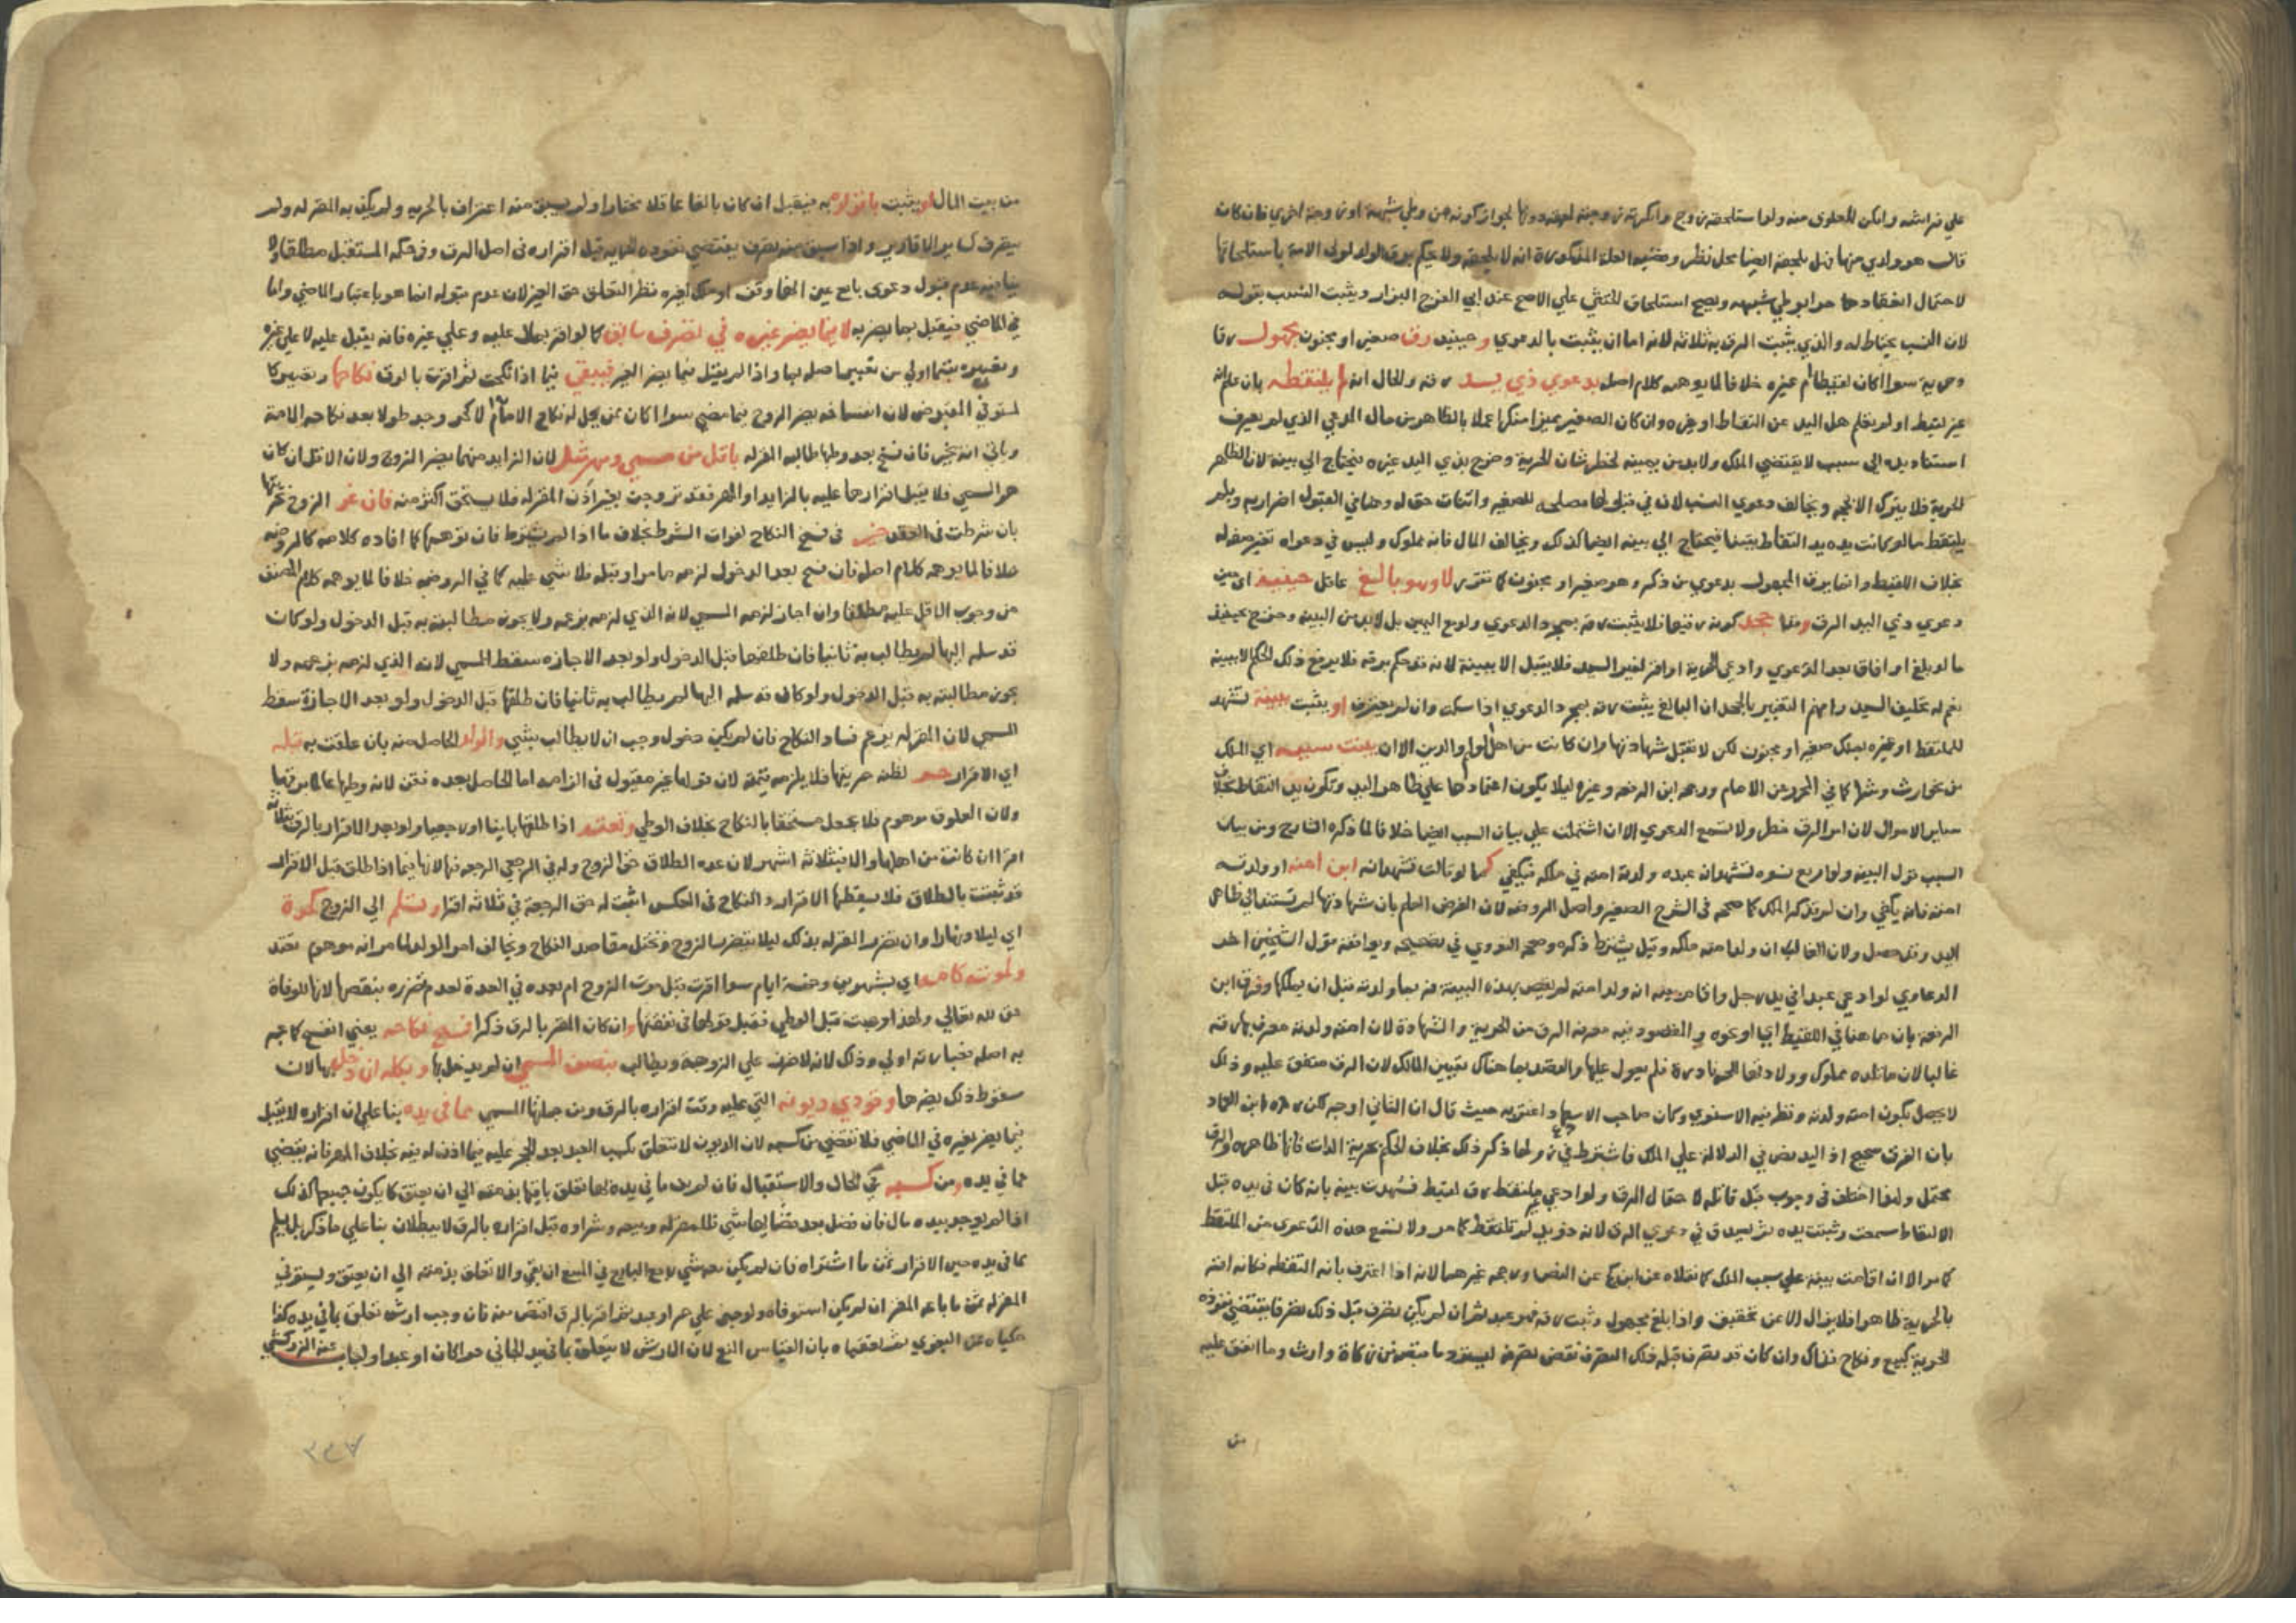 على فراشه وامكن للعلوق منه ولو استلحقه زوج وانكرته زوجته لحقه دونها لجواز كونه من وطي شبهة او زوجة اخري فان كان
قالت هو ولدي منها فهل يلحقه ايضا محل نظر وقضيه العلة المذكورة انه لا يلحقه ولا يحكم برق الولد لمولى الامة باستلحاقها
لاحتمال انعقاده حرا بوطي شبهه ويصح استلحاق الخنثي علي الاصح عند ابي الفرج البزار ويثبت النسب بقوله
لان النسب يحتاط له والذي يثبت الرق به ثلاثة لانه اما ان يثبت بالدعوي وحينيذ رق صغير او مجنون مجهول رقا
وحرية سوا اكان لقيطا ام غيره خلافا لما يوهمه كلام اصله بدعوي ذي يد رقه والحال انه لم يلتقطه بان علم انه
غير لقيط او لم يعلم هل اليد عن التقاط او غيره وان كان الصغير مميزا منكرا عملا بالظاهر من حال المدعي الذي لم يعرف
استناد يده الى سبب لا يقتضي الملك ولا بد من يمينه لخطر شان الحرية وخرج بذي اليد غيره فيحتاج الي بينة لان الظاهر
الحرية فلا يترك الا بحجه ويخالف دعوي النسب لان في قبولها مصلحه للصغير واثبات حق له وهنا في القبول اضرار به وبلم
يلتقط ما لو كانت يده يد التقاط يقينا فيحتاج الي بينه ايضا كذلك ويخالف المال فانه مملوك وليس في دعواه تغيير صفه له
بخلاف اللقيط وانما يرق المجهول بدعوي من ذكر وهو صغير او مجنون كما تقرر لا وهو بالغ عاقل حينيذ اي حين
دعوي ذي اليد الرق وقد جحد كونه رقيقا فلا يثبت رقه بمجرد الدعوي ولو مع اليمين بل لا بد من البينه وخرج بحينيذ
ما لو بلغ او افاق بعد الدعوي وادعي الحرية او اقر لغير السيد فلا يقبل الا ببينة لانه قد حكم برقه فلا يرفع ذلك الحكم الا ببينه
نعم له تحليف السيد وافهم التعبير بالجحد ان البالغ يثبت رقه بمجرد الدعوي اذا سكت وان لم يعترف او يثبت ببينة تشهد
للملتقط او غيره بملك صغير او مجنون لكن لا تقبل شهادتها وان كانت من اهل العلم والدين الا ان بينت سببه اي الملك
من نحو ارث وشرا كما في المجرد عن الامام ورجحه ابن الرفعه وغيره ليلا يكون اعتمادها علي ظاهر اليد وتكون يد التقاط بخلاف
ساير الاموال لان امر الرق خطر ولا تسمع الدعوي الا ان اشتملت علي بيان السبب ايضا خلافا لما ذكره الشارح ومن بيان
السبب قول البينه ولو اربع نسوه تشهد انه عبده ولدته امته في ملكه فيكفي كما لو قالت نشهد انه ابن امته او ولدته
امته فانه يكفي وان لم يذكر الملك كما صححه في الشرح الصغير واصل الروضه لان الغرض العلم بان شهادتها لم تستند الي ظاهر
اليد وقد حصل ولان الغالب ان ولد امته ملكه وقيل يشترط ذكره وصححه النووي في تصحيحه ويوافقه قول الشيخين اخر
الدعاوي لو ادعي عبدا في يد رجل واقام بينه انه ولد امته لم يقض بهذه البينة فربما ولدته قبل ان يملكها وفرق ابن
الرفعة بان ما هنا في اللقيط ابي او نحوه والمقصود فيه معرفه الرق من الحرية والشهادة لان امته ولدته معرفة رقه
غالبا لان ما تلده مملوك وولادتها الحر نادرة فلم يعول عليها والقصد بما هناك تعيين المالك لان الرق متفق عليه وذلك
لا يحصل بكون امته ولدته ونظر فيه الاسنوي وكان صاحب الاسعاد اغتر به حيث قال ان الثاني اوجه لكن رده ابن العماد
بان الفرق صحيح اذ اليد نص في الدلالة علي الملك فاشترط في زوالها ذكر ذلك بخلاف الحكم بحرية الدار فانها ظاهره والرق
محتمل ولهذا اختلف في وجوب قتل قاتله لاحتمال الرق ولو ادعي ملتقط رق لقيط فشهدت بينه بانه كان في يده قبل
الالتقاط سمعت وثبتت يده ثم يصدق في دعوي الرق لانه ذو يد لم تلتقط كما مر ولا تسمع هذه الدعوى من الملتقط
كما مر الا ان اقامت بينة علي سبب الملك كما نقلاه عن ابن كج عن النص ورجحه غيرهما لانه اذا اعترف بانه التقطه فكانه اقر
بالحرية ظاهرا فلا يزال الا عن تحقيق واذا بلغ مجهول وثبت رقه فهو عبد ثم ان لم يكن تصرف قبل ذلك تصرفا يقتضي نفوذه
الحرية كبيع ونكاح فذاك وان كان قد تصرف قبله ذلك التصرف نقض تصرفه ليسترد ما قبض من زكاة وارث وما انفق عليه
من
من بيت المال او يثبت باقراره به فيقبل ان كان بالغا عاقلا مختارا ولم يسبق منه اعتراف بالحريه ولم يكذبه المقر له ولم
يتصرف كساير الاقارير واذا سبق منه تصرف يقتضي نفوذه الحرية قبل اقراره في اصل الرق وفي حكمه المستقبل مطلقا ولا
ينافيه عدم قبول دعوى بايع عين انها وقف او ملك لغيره نظرا لتعلق حق الغير لان عدم قبوله انما هو باعتبار الماضي واما
في الماضي فيقبل بما يضر به لا بما يضر غيره في تصرف سابق كما لو اقر بمال عليه وعلي غيره فانه يقبل عليه لا علي غيره
وتعبيره بتما اولي من تعبير اصله بها واذا لم يقبل فيما يضر الغير فيبقي فيما اذا نكحت ثم اقرت بالرق نكاحها ويصير كا
لمستوفي المقبوض لان انفساخه يضر الزوج فيما مضي سوا اكان ممن يحل له نكاح الاما ام لا كحر وجد طولا بعد نكاحه الامة
وياتي انه يخير فان فسخ بعد وطيها طالبه المقر له باقل من مسمي ومهر مثل لان الزايد منهما يضر الزوج ولان الاقل ان كان
هو المسمي فلا يقبل اقرارها عليه بالزايد او المهر فقد تزوجت بغير اذن المقر له فلا يستحق اكثر منه فان غر الزوج بحريتها
بان شرطت في العقد خير في فسخ النكاح لفوات الشرط بخلاف ما اذا لم يشترط فان توهمها كما افاده كلامه كالروضه
خلافا لما يوهمه كلام اصله فان فسخ بعد الدخول لزمه ما مر او قبله فلا شي عليه كما في الروضه خلافا لما يوهمه كلام المصنف
من وجوب الاقل عليه مطلقا وان اجاز لزمه المسمي لانه الذي لزمه بزعمه ولا يجوز مطالبته به قبل الدخول ولو كان
قد سلمه اليها لم يطالب به ثانيا فان طلقها قبل الدخول ولو بعد الاجازه سقط المسمي لانه الذي لزمه بزعمه ولا
يجوز مطالبته به قبل الدخول ولو كان قد سلمه اليها لم يطالب به ثانيا فان طلقها قبل الدخول ولو بعد الاجازة سقط
المسمي لان المقر له يزعم فساد النكاح فان لم يكن دخول وجب ان لا يطالب بشي والولد الحاصل منه بان علقت به قبله
اي الاقرار حر لظنه حريتها فلا يلزمه قيمته لان قولها غير مقبول في الزامه اما الحاصل بعده فقن لانه وطيها عالما برقها
ولان العلوق موهوم فلا يجعل مستحقا بالنكاح بخلاف الوطي وتعتد اذا طلقها باينا او رجعيا ولو بعد الاقرار بالرق بثلاثة
اقراء ان كانت من اهلها والا فبثلاثة اشهر لان عده الطلاق حق الزوج وله في الرجعي الرجعه فيها لانها فيما اذا طلق قبل الاقرار
قد ثبتت بالطلاق فلا يسقطها الاقرار والنكاح في العكس اثبت له حق الرجعة في ثلاثة اقراء وتسلم الي الزوج كحرة
اي ليلا ونهارا وان تضرر المقر له بذلك ليلا يتضرر الزوج وتختل مقاصد النكاح ويخالف امر الولد لما مر انه موهوم وتعتد
لموته كامة اي بشهرين وخمسة ايام سوا اقرت قبل موت الزوج ام بعده في العدة لعدم تضرره بنقصها لانها للوفاة
حق لله تعالي ولهذا وجبت قبل الوطي فقبل قولها في نقصها وان كان المقر بالرق ذكرا فسخ نكاحه يعني انفسخ كما عبر
به اصله فعبارته اولي وذلك لانه لا ضرر علي الزوجة ويطالب بنصف المسمي ان لم يدخل بها وبكله ان دخل بها لان
سقوط ذلك يضرها وتودي ديونه التي عليه وقت اقراره بالرق ومن جملتها المسمي مما في يده بنا علي ان اقراره لا يقبل
فيما يضر بغيره في الماضي فلا تقضي من كسبه لان الديون لا تتعلق بكسب العبد بعد الحجر عليه فيما اذن له فيه بخلاف المهر فانه يقضي
مما في يده ومن كسبه في الحال والاستقبال فان لم يف ما في يده بها تعلق باقيها بذمته الي ان يعتق كما يكون جميعها كذلك
اذا لم يوجد بيده مال فان فضل بعد قضايها شي فللمقر له وبيعه وشراوه قبل اقراره بالرق لا يبطلان بنا علي ما ذكر بل يسلم
مما في يده حين الاقرار ثمن ما اشتراه فان لم يكن معه شي رجع البايع في المبيع ان بقي والا تعلق بذمته الي ان يعتق ويستوفي
المقر له ثمن ما باعه المقر ان لم يكن استوفاه ولو جني علي حر او عبد ثم اقر بالرق اقتص منه فان وجب ارش تعلق بما في يده كذا
حكياه عن البغوي ثم تعقباه بان القياس المنع لان الارش لا يتعلق بما في يد الجاني حرا كان او عبدا واجاب عنه الزركشي
٣٣٧